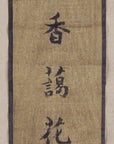 香藹花